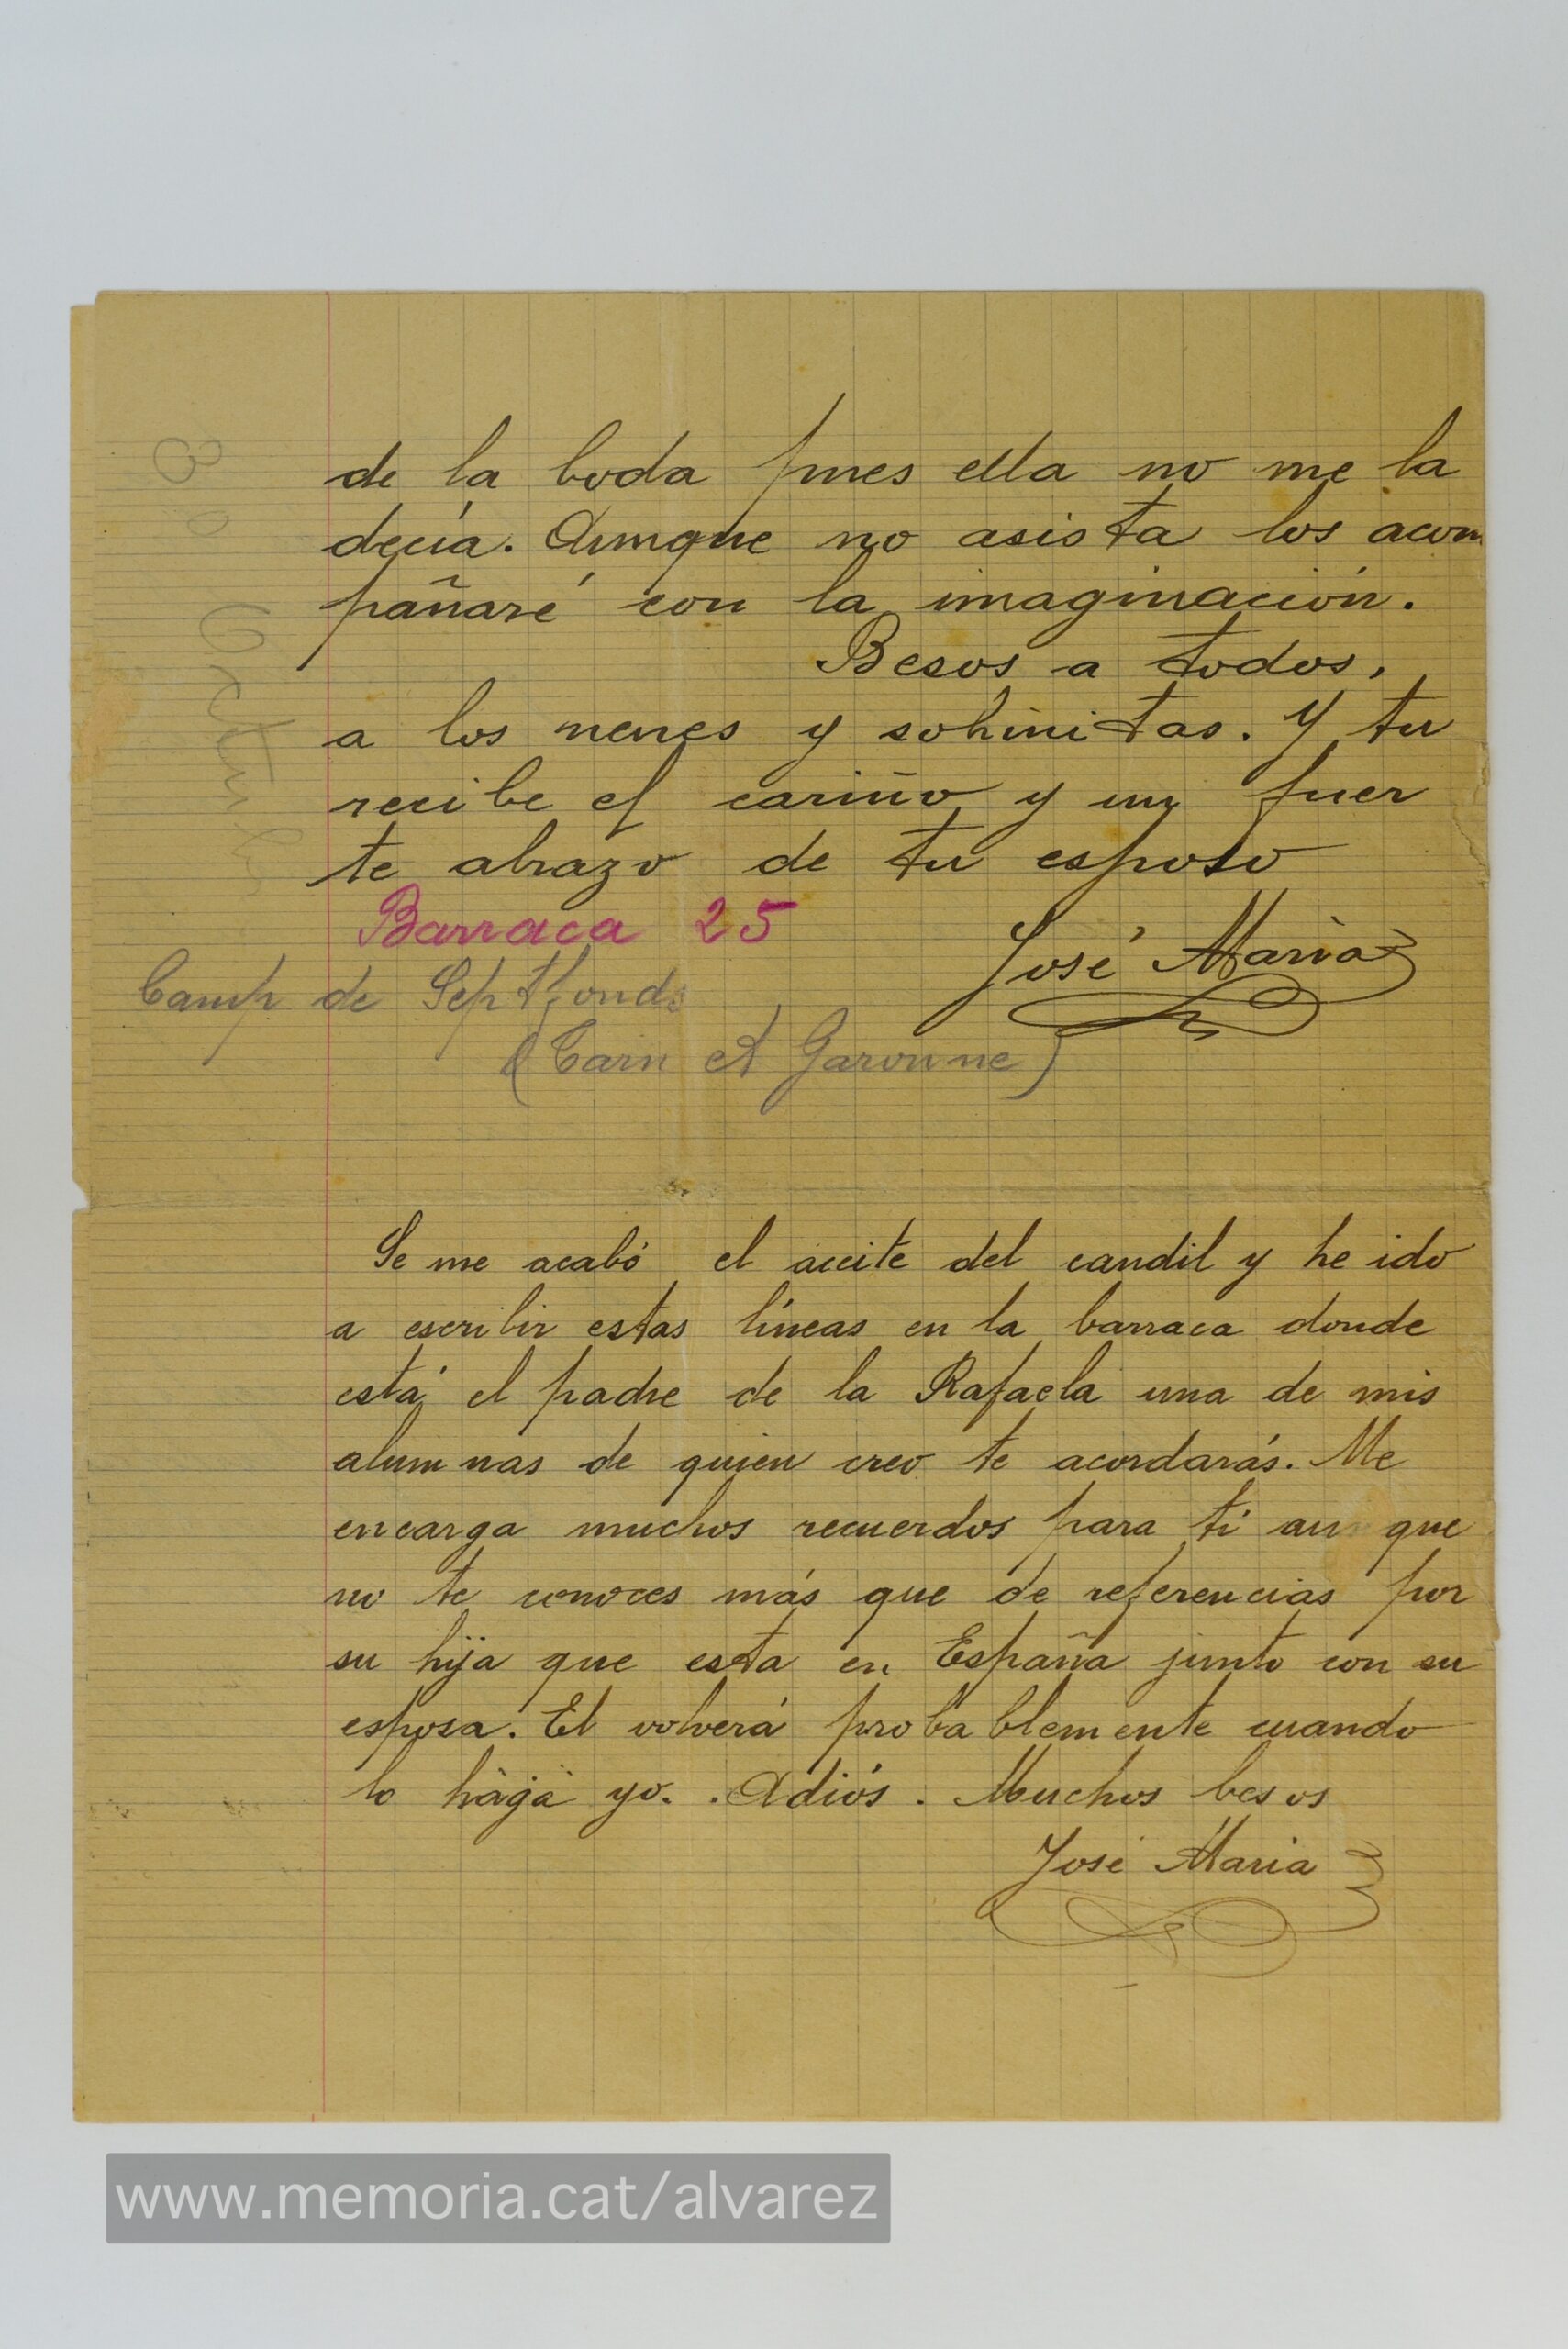 de la boda pues ella no me la
decía. Aunque no asista los acom
pañaré con la imaginación.
Besos a todos,
a los nenes y sobrinitas. Y tu
recibe el cariño y un fuer
te abrazo de tu esposo
Barraca 25
José Maria
Camp de Septfonds
(Tarn et Garonne)
Se me acabó el aceite del candil y he ido
a escribir estas líneas en la barraca donde
está el padre de la Rafaela una de mis
alumnas de quien creo te acordarás. Me
encarga muchos recuerdos para ti aunque
no te conoces más que de referencias por
su hija que esta en España junto con su
esposa. El volverá probablemente cuando
lo haga yo. Adiós. Muchos besos
José Maria
www.memoria.cat/alvarez